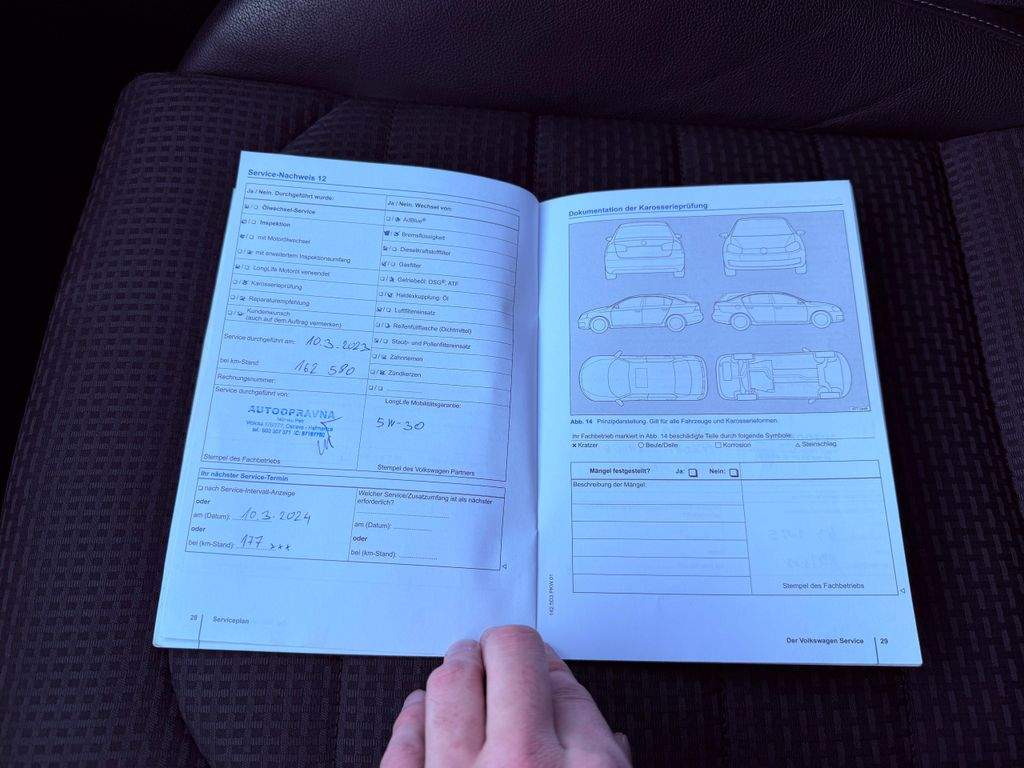 Service-Nachweis 12
Ja / Nein. Durchgeführt wurde:
Ölwechsel-Service
Inspektion
mit Motorölwechsel
mit erweitertem Inspektionsumfang
LongLife Motoröl verwendet
Karosserieprüfung
Reparaturempfehlung
Kundenwunsch
(auch auf dem Auftrag vermerken)
Service durchgeführt am: 10.3.2023
bei km-Stand: 162 580
Rechnungsnummer:
Service durchgeführt von:
AUTOOPRAVNA
Stempel des Fachbetriebs
Ja / Nein. Wechsel von:
AdBlue®
Bremsflüssigkeit
Dieselkraftstofffilter
Gasfilter
Getriebeöl: DSG®, ATF
Haldexkupplung: Öl
Luftfiltereinsatz
Reifenfüllflasche (Dichtmittel)
Staub- und Pollenfiltereinsatz
Zahnriemen
Zündkerzen
LongLife Mobilitätsgarantie:
5W-30
Stempel des Volkswagen Partners
Ihr nächster Service-Termin
nach Service-Intervall-Anzeige
oder
am (Datum): 10.3.2024
oder
bei (km-Stand): 177 xxx
Welcher Service/Zusatzumfang ist als nächster
erforderlich?
am (Datum):
oder
bei (km-Stand):
28 Serviceplan
Dokumentation der Karosserieprüfung
Abb. 14 Prinzipdarstellung. Gilt für alle Fahrzeuge und Karosserieformen.
Ihr Fachbetrieb markiert in Abb. 14 beschädigte Teile durch folgende Symbole:
x Kratzer ○ Beule/Delle □ Korrosion △ Steinschlag
Mängel festgestellt? Ja: Nein:
Beschreibung der Mängel:
Stempel des Fachbetriebs
Der Volkswagen Service 29